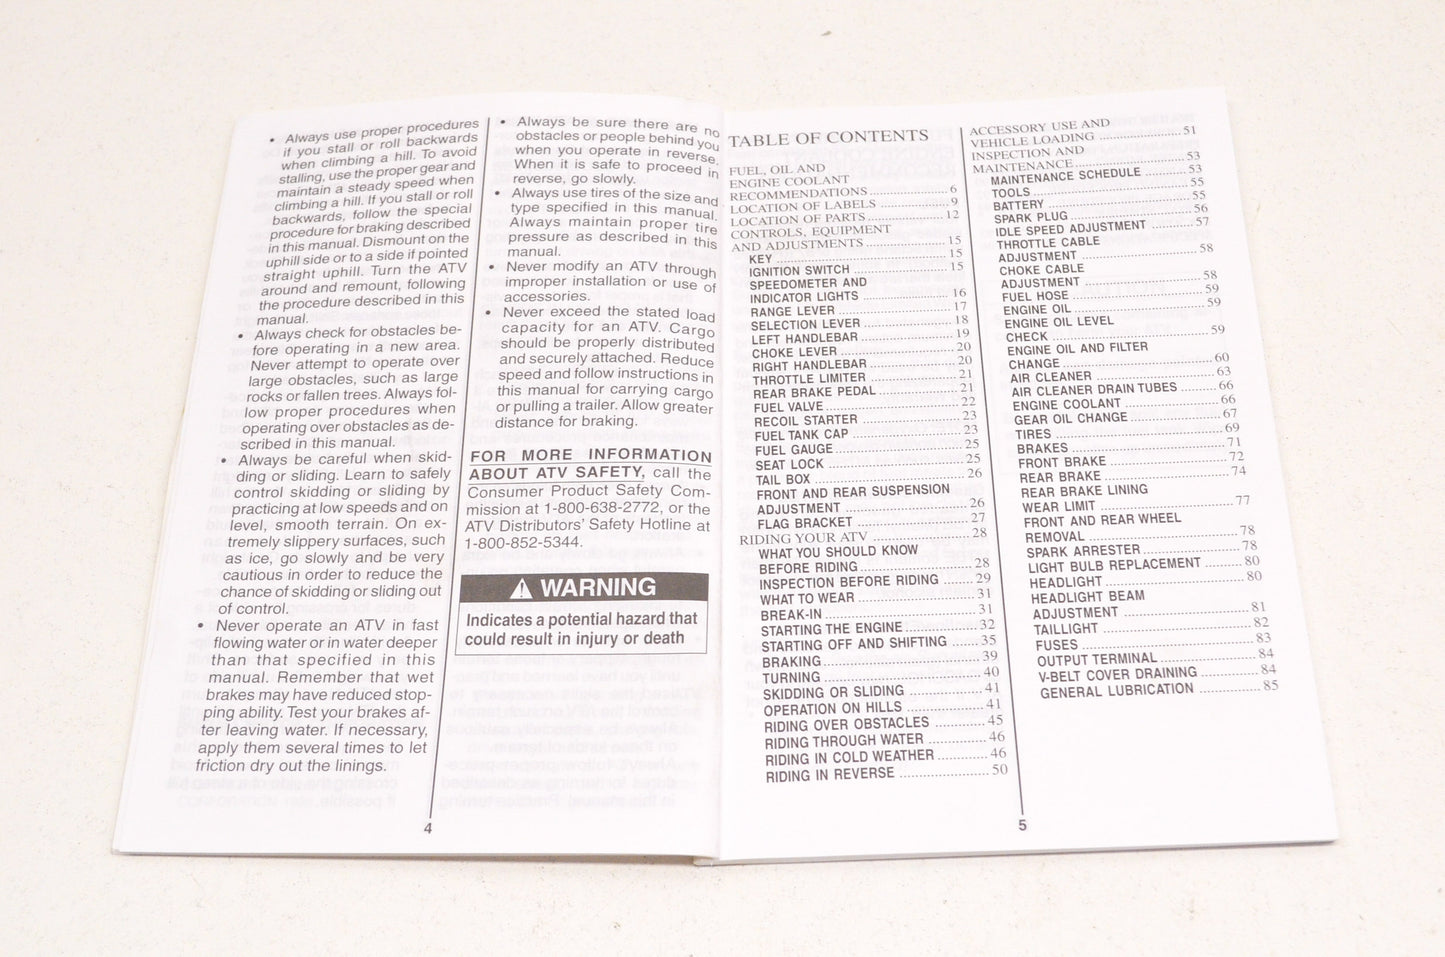 • Always use proper procedures
if you stall or roll backwards
when climbing a hill. To avoid
stalling, use the proper gear and
maintain a steady speed when
climbing a hill. If you stall or roll
backwards, follow the special
procedure for braking described
in this manual. Dismount on the
uphill side or to a side if pointed
straight uphill. Turn the ATV
around and remount, following
the procedure described in this
manual.
• Always check for obstacles be-
fore operating in a new area.
Never attempt to operate over
large obstacles, such as large
rocks or fallen trees. Always fol-
low proper procedures when
operating over obstacles as de-
scribed in this manual.
• Always be careful when skid-
ding or sliding. Learn to safely
control skidding or sliding by
practicing at low speeds and on
level, smooth terrain. On ex-
tremely slippery surfaces, such
as ice, go slowly and be very
cautious in order to reduce the
chance of skidding or sliding out
of control.
• Never operate an ATV in fast
flowing water or in water deeper
than that specified in this
manual. Remember that wet
brakes may have reduced stop-
ping ability. Test your brakes af-
ter leaving water. If necessary,
apply them several times to let
friction dry out the linings.
• Always be sure there are no
obstacles or people behind you
when you operate in reverse.
When it is safe to proceed in
reverse, go slowly.
• Always use tires of the size and
type specified in this manual.
Always maintain proper tire
pressure as described in this
manual.
• Never modify an ATV through
improper installation or use of
accessories.
• Never exceed the stated load
capacity for an ATV. Cargo
should be properly distributed
and securely attached. Reduce
speed and follow instructions in
this manual for carrying cargo
or pulling a trailer. Allow greater
distance for braking.
FOR MORE INFORMATION
ABOUT ATV SAFETY, call the
Consumer Product Safety Com-
mission at 1-800-638-2772, or the
ATV Distributors' Safety Hotline at
1-800-852-5344.
WARNING
Indicates a potential hazard that
could result in injury or death
4
TABLE OF CONTENTS
FUEL, OIL AND
ENGINE COOLANT
RECOMMENDATIONS ........ 6
LOCATION OF LABELS ........ 9
LOCATION OF PARTS ........ 12
CONTROLS, EQUIPMENT
AND ADJUSTMENTS ........ 15
KEY ........ 15
IGNITION SWITCH ........ 15
SPEEDOMETER AND
INDICATOR LIGHTS ........ 16
RANGE LEVER ........ 17
SELECTION LEVER ........ 18
LEFT HANDLEBAR ........ 19
CHOKE LEVER ........ 20
RIGHT HANDLEBAR ........ 20
THROTTLE LIMITER ........ 21
REAR BRAKE PEDAL ........ 21
FUEL VALVE ........ 22
RECOIL STARTER ........ 23
FUEL TANK CAP ........ 23
FUEL GAUGE ........ 25
SEAT LOCK ........ 25
TAIL BOX ........ 26
FRONT AND REAR SUSPENSION
ADJUSTMENT ........ 26
FLAG BRACKET ........ 27
RIDING YOUR ATV ........ 28
WHAT YOU SHOULD KNOW
BEFORE RIDING ........ 28
INSPECTION BEFORE RIDING ........ 29
WHAT TO WEAR ........ 31
BREAK-IN ........ 31
STARTING THE ENGINE ........ 32
STARTING OFF AND SHIFTING ........ 35
BRAKING ........ 39
TURNING ........ 40
SKIDDING OR SLIDING ........ 41
OPERATION ON HILLS ........ 41
RIDING OVER OBSTACLES ........ 45
RIDING THROUGH WATER ........ 46
RIDING IN COLD WEATHER ........ 46
RIDING IN REVERSE ........ 50
ACCESSORY USE AND
VEHICLE LOADING ........ 51
INSPECTION AND
MAINTENANCE ........ 53
MAINTENANCE SCHEDULE ........ 53
TOOLS ........ 55
BATTERY ........ 55
SPARK PLUG ........ 56
IDLE SPEED ADJUSTMENT ........ 57
THROTTLE CABLE
ADJUSTMENT ........ 58
CHOKE CABLE
ADJUSTMENT ........ 58
FUEL HOSE ........ 59
ENGINE OIL ........ 59
ENGINE OIL LEVEL
CHECK ........ 59
ENGINE OIL AND FILTER
CHANGE ........ 60
AIR CLEANER ........ 63
AIR CLEANER DRAIN TUBES ........ 66
ENGINE COOLANT ........ 66
GEAR OIL CHANGE ........ 67
TIRES ........ 69
BRAKES ........ 71
FRONT BRAKE ........ 72
REAR BRAKE ........ 74
REAR BRAKE LINING
WEAR LIMIT ........ 77
FRONT AND REAR WHEEL
REMOVAL ........ 78
SPARK ARRESTER ........ 78
LIGHT BULB REPLACEMENT ........ 80
HEADLIGHT ........ 80
HEADLIGHT BEAM
ADJUSTMENT ........ 81
TAILLIGHT ........ 82
FUSES ........ 83
OUTPUT TERMINAL ........ 84
V-BELT COVER DRAINING ........ 84
GENERAL LUBRICATION ........ 85
5